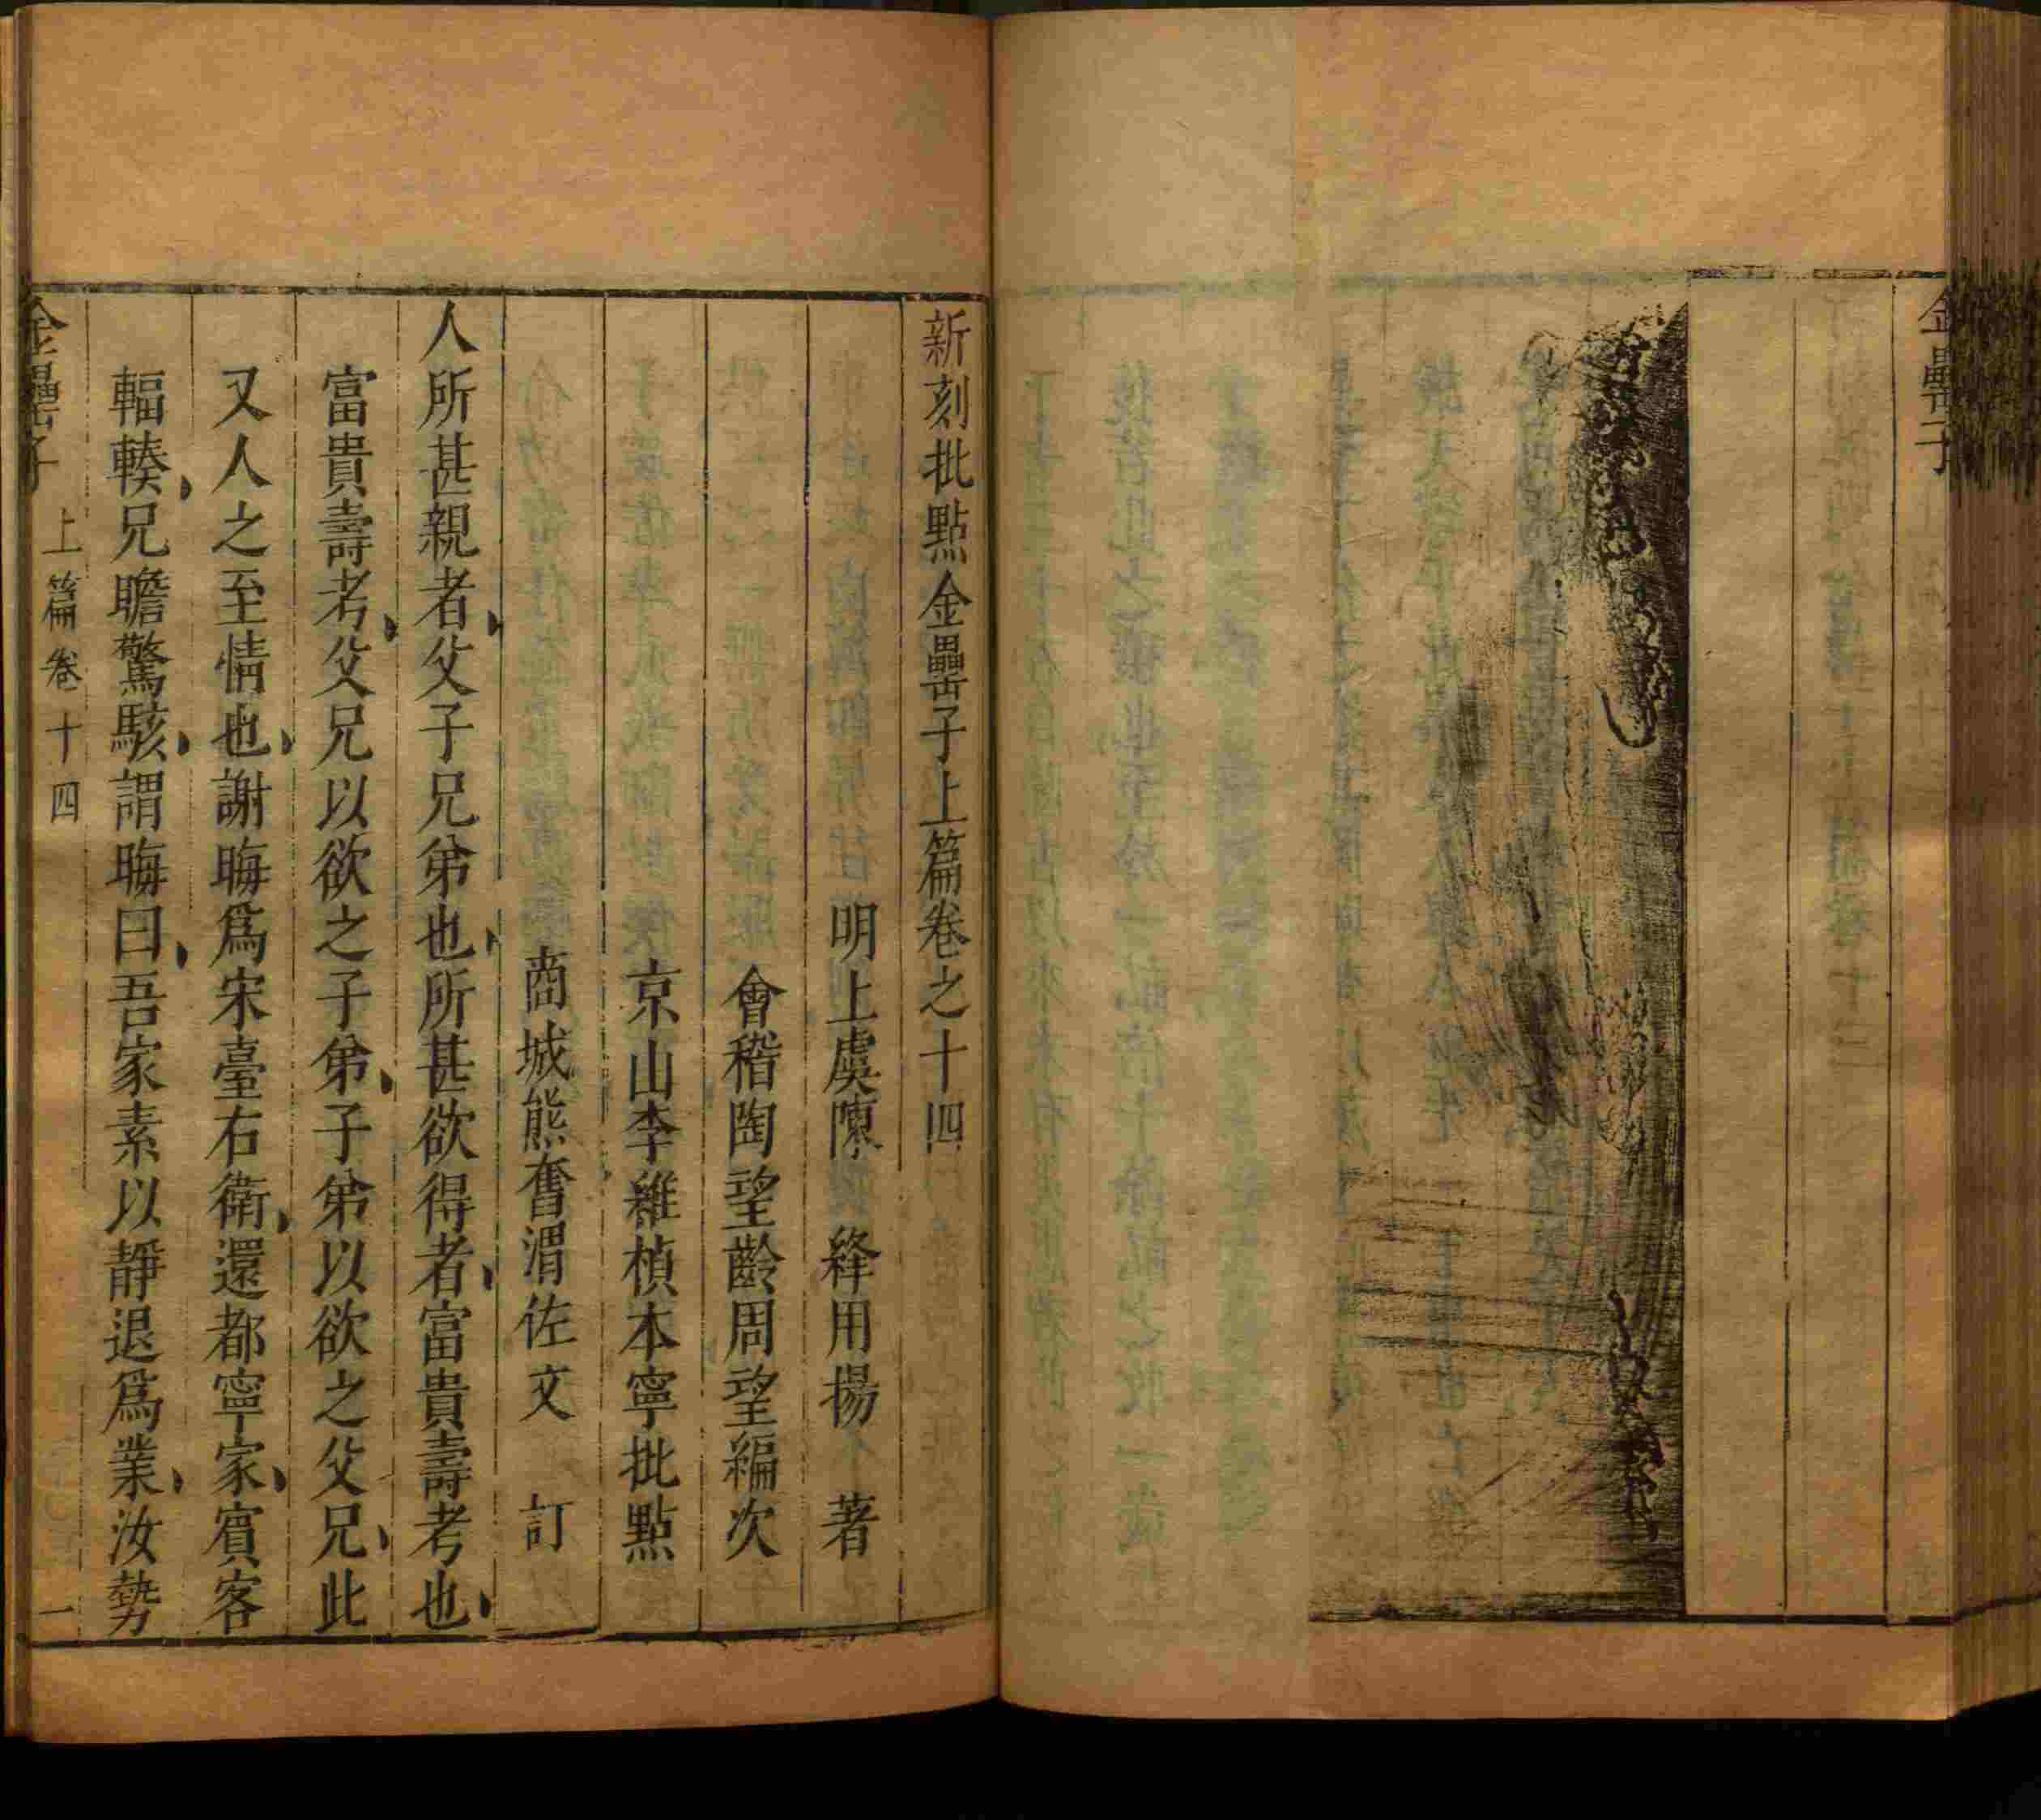 金罍子
新刻批點金罍子上篇卷之十四
明上虞陳 絳用揚 著
會稽陶望齡周望編次
京山李維楨本寧批點
商城熊奮渭佐文 訂
人所甚親者父子兄弟也所甚欲得者富貴壽考也
富貴壽考父兄以欲之子弟子弟以欲之父兄此
又人之至情也謝晦爲宋臺右衛還都寧家賓客
輻輳兄瞻驚駭謂晦曰吾家素以靜退爲業汝勢
金罍子 上篇卷十四 一